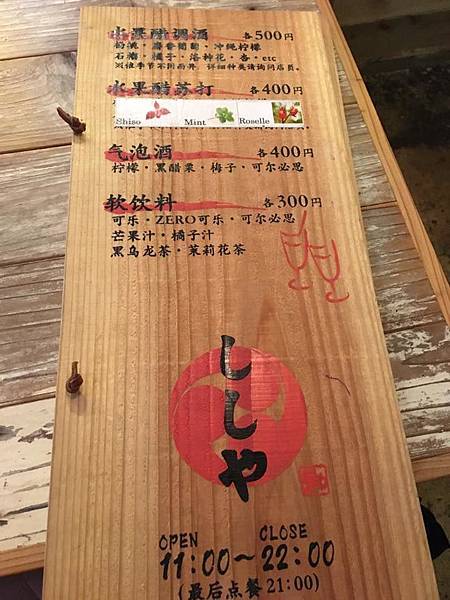 水果醋调酒 各500円
奶淇・麝香葡萄・冲绳柠檬
石榴・橘子・洛神花・杏・etc
※依季节不同而异 详细种类请询问店员。
水果醋苏打 各400円
Shiso Mint Roselle
气泡酒 各400円
柠檬・黑醋栗・梅子・可尔必思
软饮料 各300円
可乐・ZERO可乐・可尔必思
芒果汁・橘子汁
黑乌龙茶・茉莉花茶
ししや
OPEN CLOSE
11:00～22:00
(最后点餐21:00)